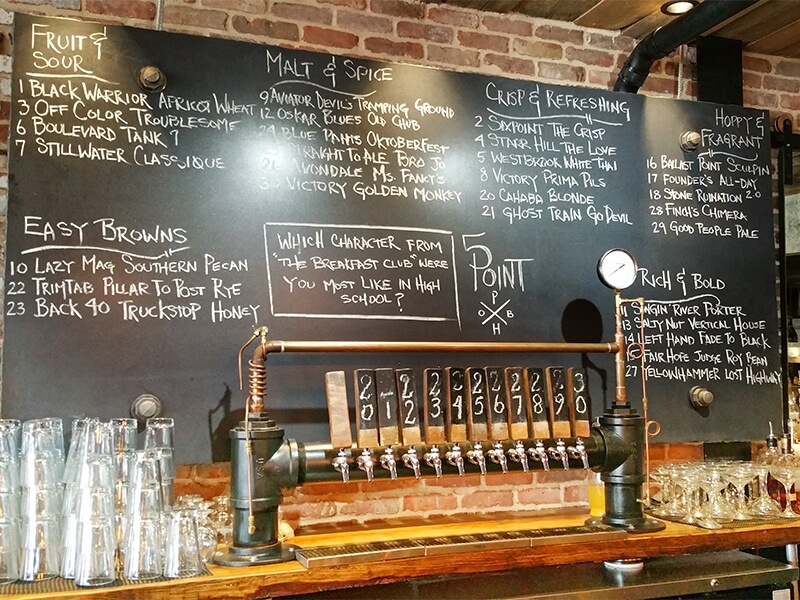 FRUIT &
SOUR
1 BLACK WARRIOR APRICOT WHEAT
3 OFF COLOR TROUBLESOME
6 BOULEVARD TANK 7
7 STILLWATER CLASSIQUE
EASY BROWNS
10 LAZY MAG SOUTHERN PECAN
22 TRIMTAB PILLAR TO POST RYE
23 BACK 40 TRUCKSTOP HONEY
MALT & SPICE
9 AVIATOR DEVIL'S TRAMPING GROUND
12 OSKAR BLUES OLD CHUB
24 BLUE PANTS OKTOBERFEST
STRAIGHT TO ALE TORO JO
26 AVONDALE MS. FANCY'S
30 VICTORY GOLDEN MONKEY
WHICH CHARACTER FROM
"THE BREAKFAST CLUB" WERE
YOU MOST LIKE IN HIGH
SCHOOL?
5
POINT
P
O B
H
CRISP & REFRESHING
2 SIXPOINT THE CRISP
4 STARR HILL THE LOVE
5 WESTBROOK WHITE THAI
8 VICTORY PRIMA PILS
20 CAHABA BLONDE
21 GHOST TRAIN GO DEVIL
HOPPY &
FRAGRANT
16 BALLAST POINT SCULPIN
17 FOUNDER'S ALL-DAY
18 STONE RUINATION 2.0
28 FINCH'S CHIMERA
29 GOOD PEOPLE PALE
RICH & BOLD
11 SINGIN' RIVER PORTER
13 SALTY NUT VERTICAL HOUSE
14 LEFT HAND FADE TO BLACK
15 FAIRHOPE JUDGE ROY BEAN
27 YELLOWHAMMER LOST HIGHWAY
20 21 22 23 24 25 26 27 28 29 30
USA